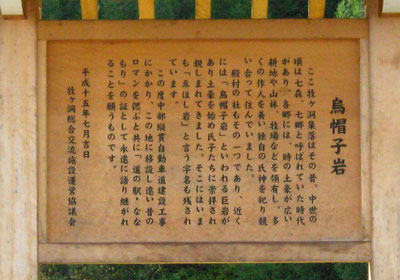 烏帽子岩
ここ牧ヶ洞集落はその昔、中世の
頃は七森、七郷と呼ばれていた時代
があり、各郷には、時の土豪が広い
耕地や山林、牧場などを領有し、多
くの作人を養い、独自の氏神を祀り競
い合って住んでいました。
殿村の社もその一つであり、近く
には「烏帽子岩」といわれる巨岩が
あり土豪を始め氏子たちに崇拝され
親しまれてきました。そこにはいま
も「ゑほし岩」と言う字名も残され
ています。
この度中部縦貫自動車道建設工事
にかかり、この地に移設し遠い昔の
ロマンを偲ぶと共に「道の駅・なな
もり」の証として永遠に語り継がれ
ることを願うものです。
平成十五年七月吉日
牧ヶ洞総合交流施設運営協議会